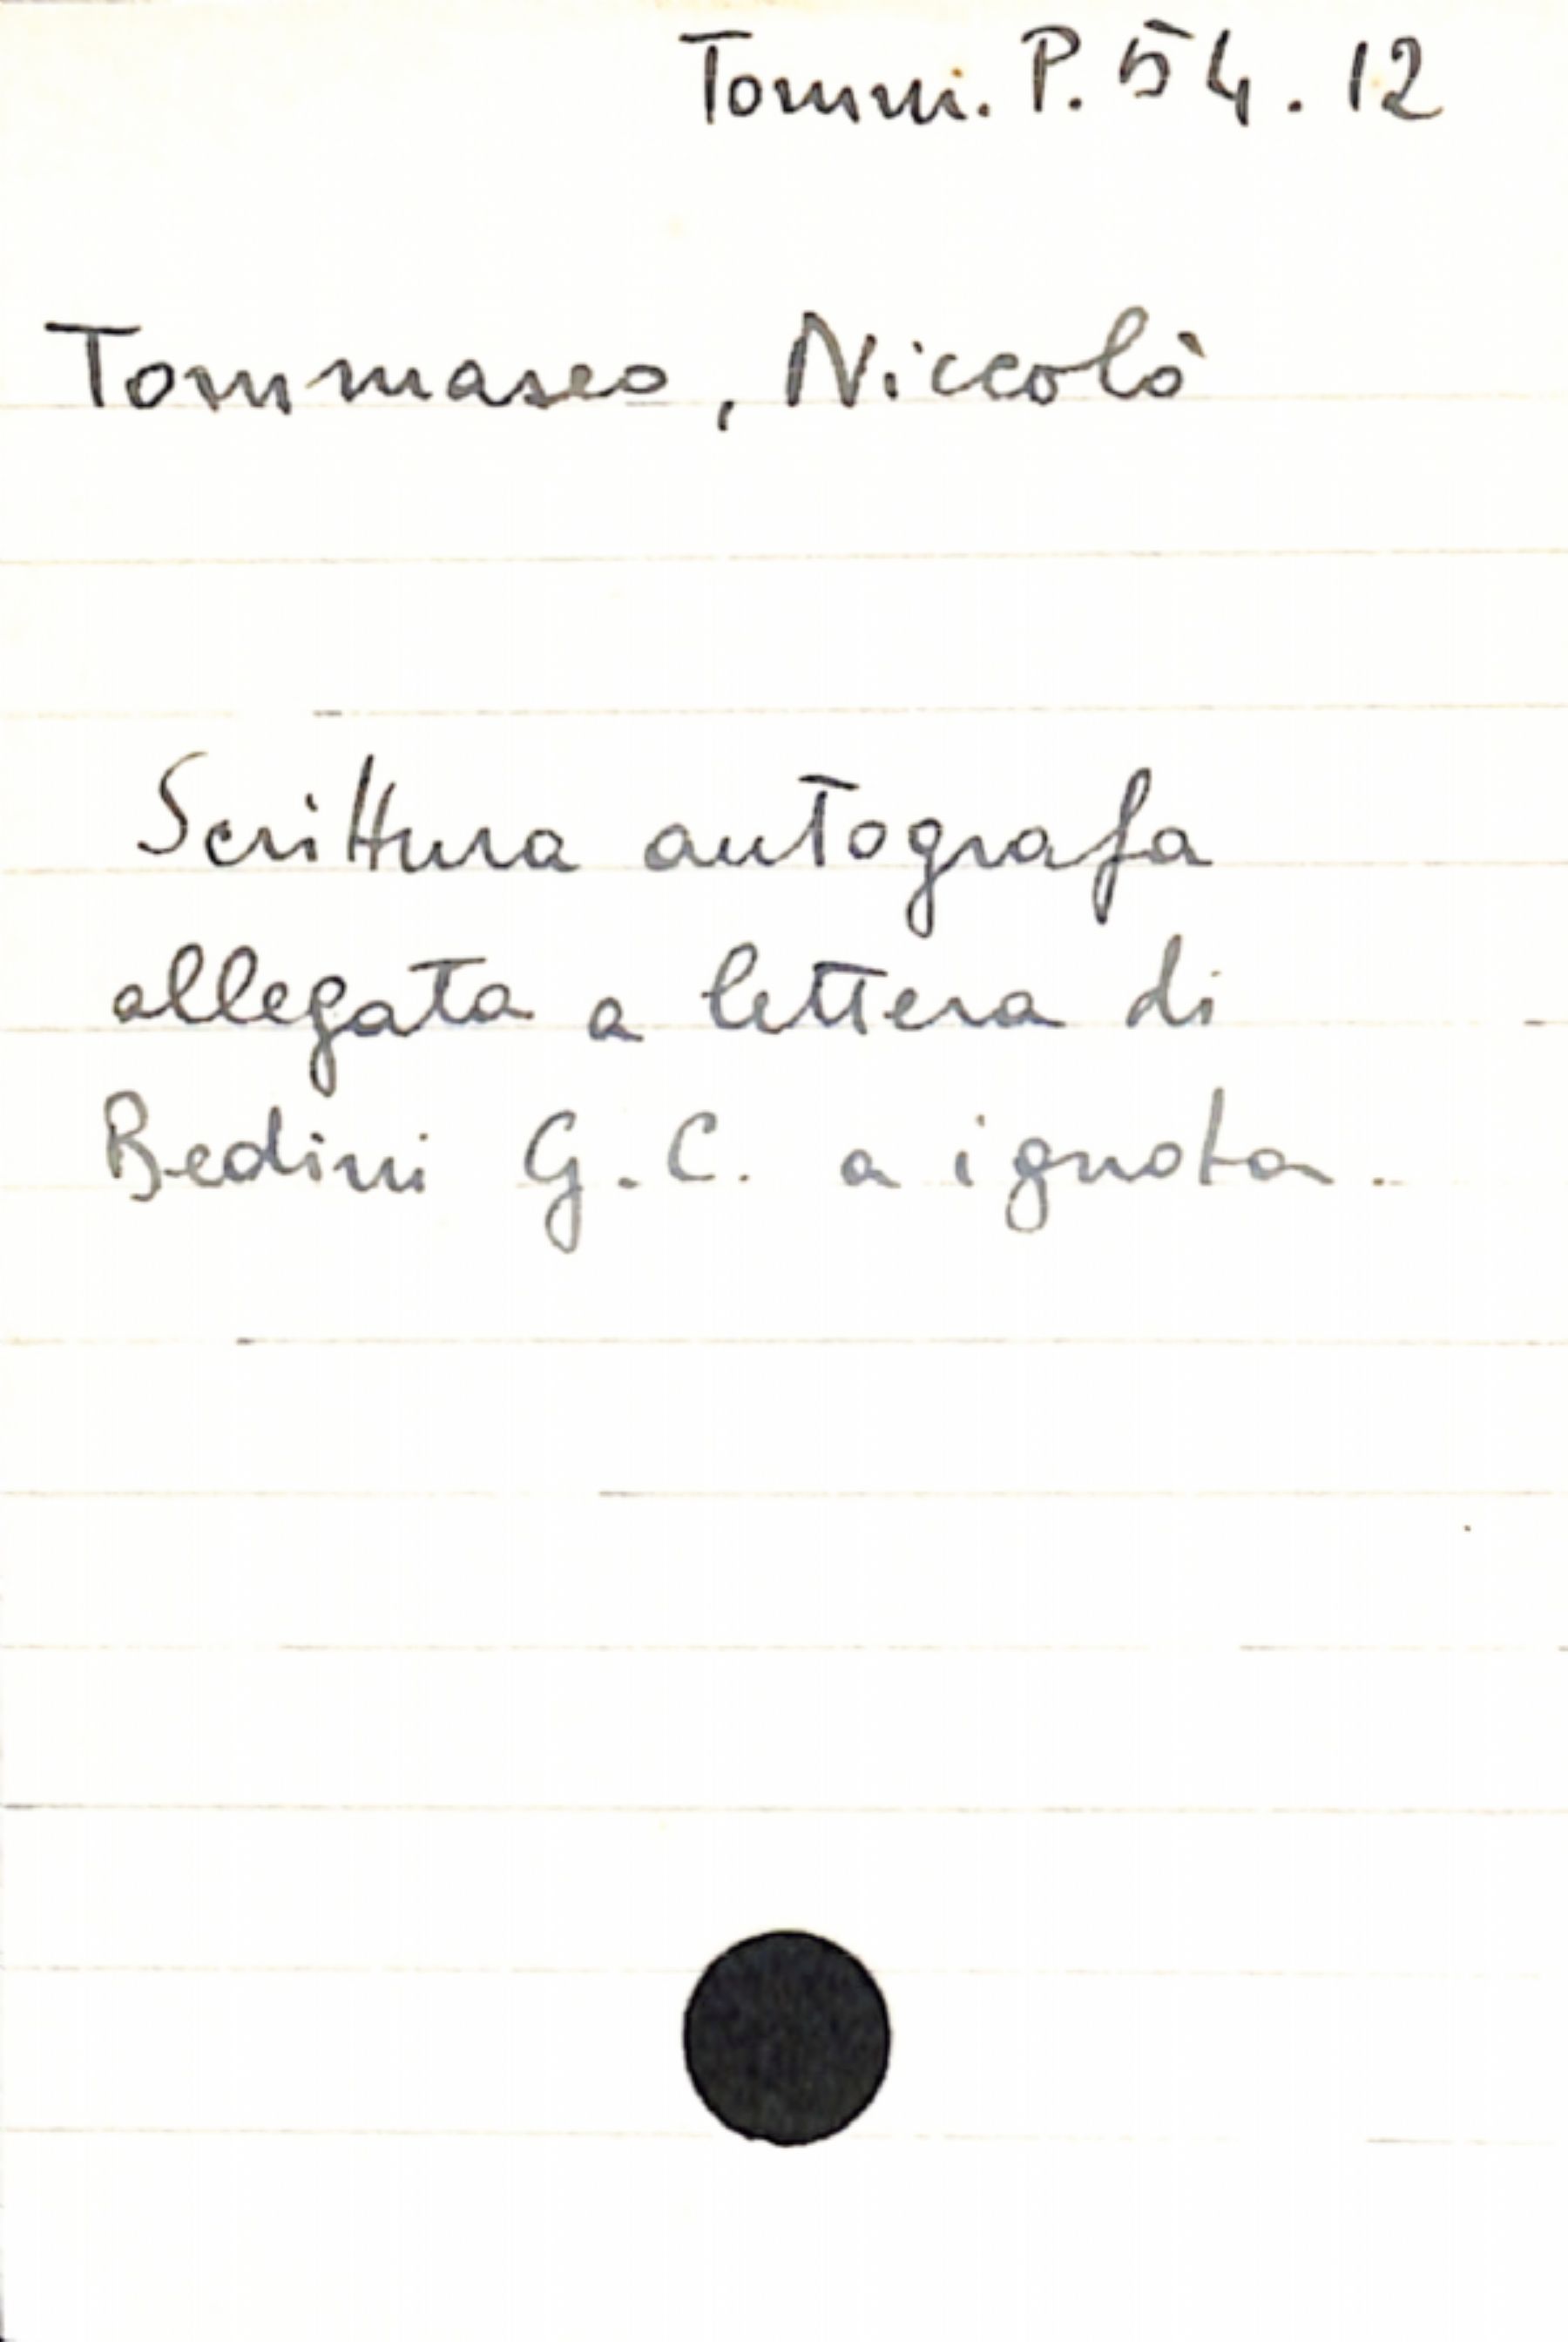 Tomm. P. 54. 12
Tommaseo, Niccolò
Scrittura autografa
allegata a lettera di
Bedini G. C. a ignota.